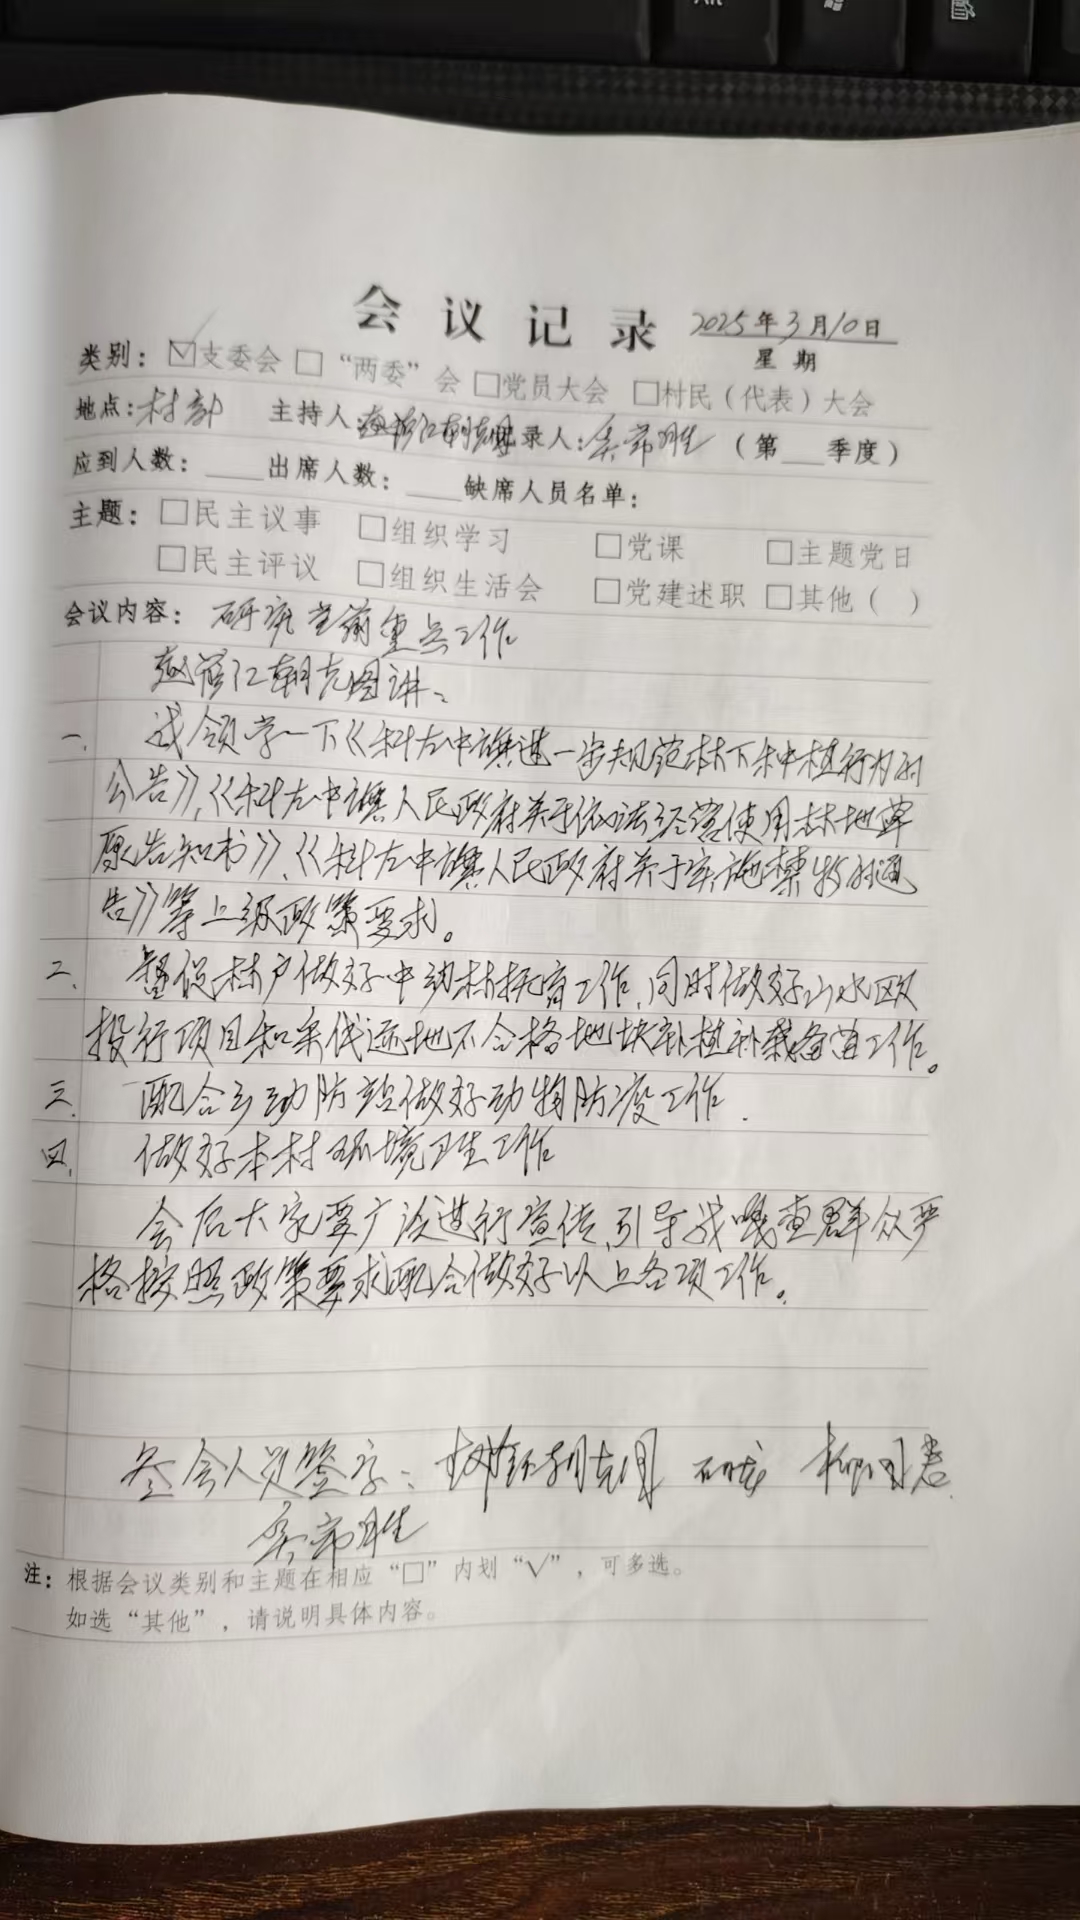 会议记录 2025年3月10日
星期
类别：☑支委会 □“两委”会 □党员大会 □村民（代表）大会
地点：村部 主持人： 记录人：吴常胜 （第__季度）
应到人数：____出席人数：____缺席人员名单：
主题：□民主议事 □组织学习 □党课 □主题党日
□民主评议 □组织生活会 □党建述职 □其他（ ）
会议内容：研究当前重点工作
朝克图讲：
一、我领学一下《科左中旗进一步规范林下种植行为的
公告》、《科左中旗人民政府关于依法经营使用林地草
原告知书》、《科左中旗人民政府关于实施禁牧的通
告》等上级政策要求。
二、督促林户做好中幼林抚育工作，同时做好山水欧
投行项目和采伐迹地不合格地块补植补栽备苗工作。
三、配合乡动防站做好动物防疫工作.
四、做好本村环境卫生工作
会后大家要广泛进行宣传，引导我嘎查群众严
格按照政策要求配合做好以上各项工作。
参会人员签字： 朝克图
吴常胜
注：根据会议类别和主题在相应“□”内划“√”，可多选。
如选“其他”，请说明具体内容。